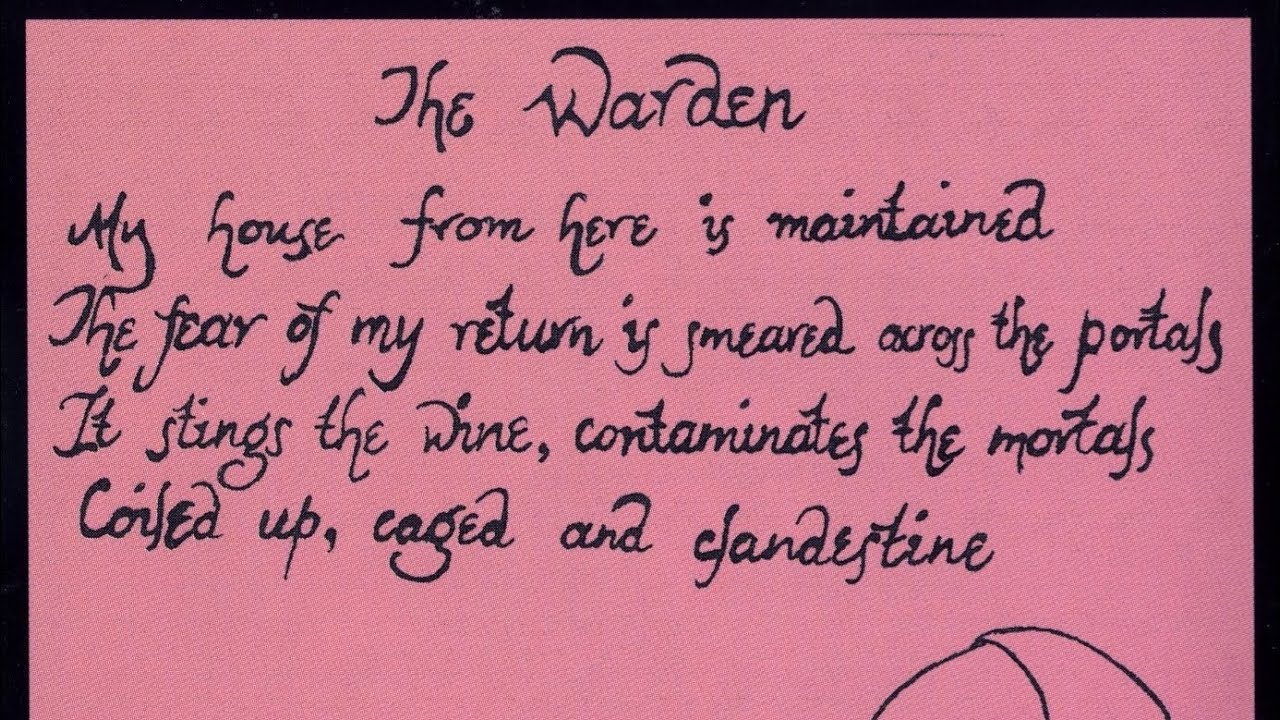 The Warden
My house from here is maintained
The fear of my return is smeared across the portals
It stings the wine, contaminates the mortals
Coiled up, caged and clandestine